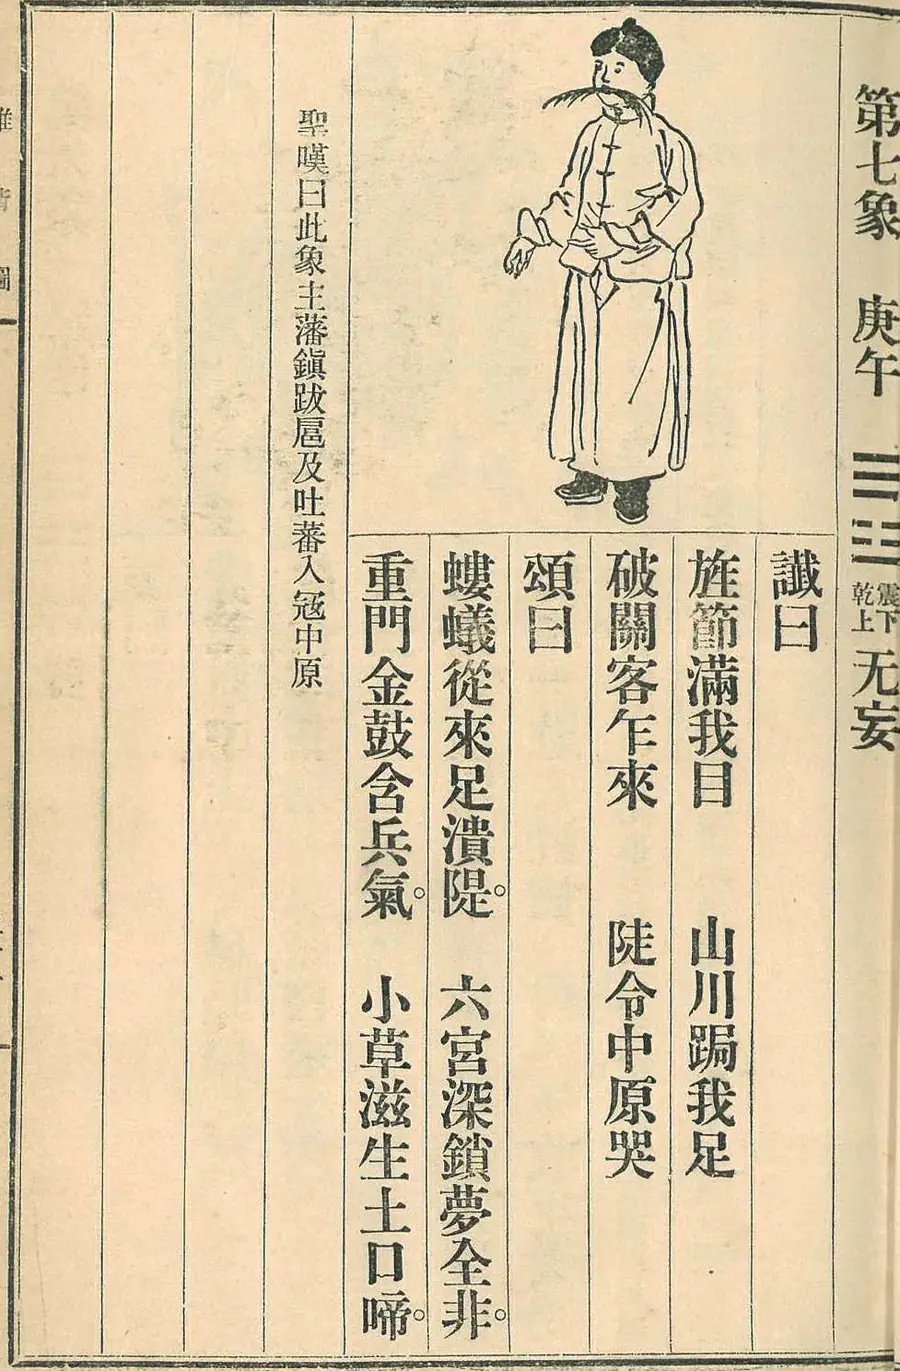 第七象 庚午 震下乾上 无妄
讖曰
旌節滿我目 山川跼我足
破關客乍來 陡令中原哭
頌曰
螻蟻從來足潰隄。 六宮深鎖夢全非。
重門金鼓含兵氣。 小草滋生土口啼。
聖嘆曰此象主藩鎭跋扈及吐蕃入寇中原